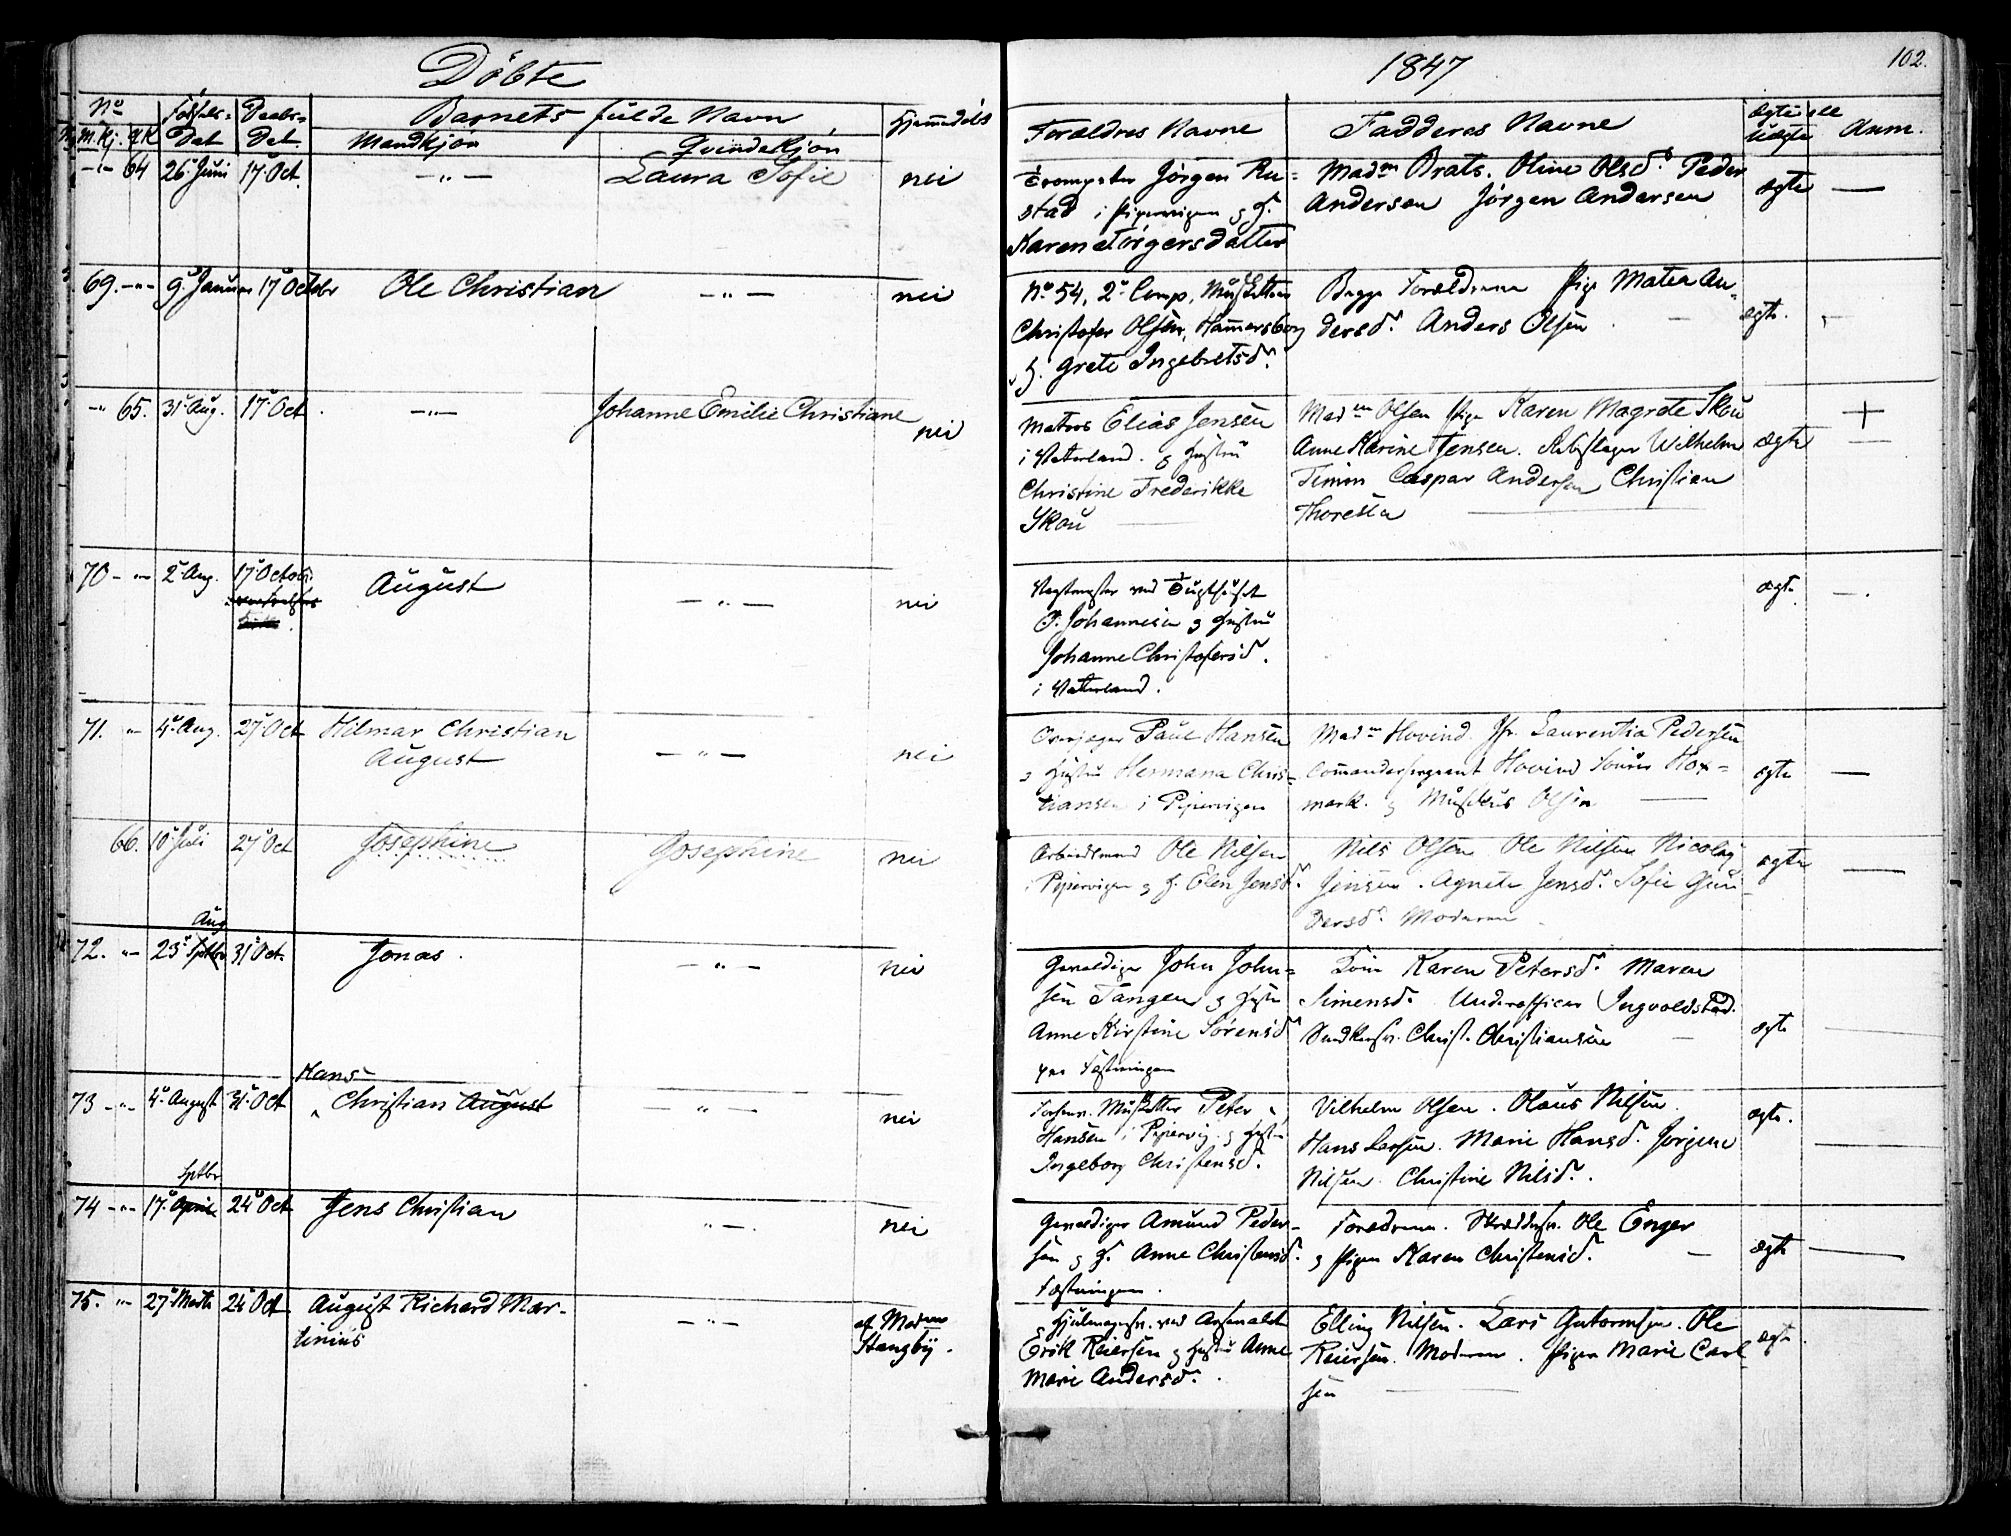 Döbte
1847
102.
No
Daabs-
Barnets fulde Navn
Hjemmedöbt
M.Kj. Q.K.
Dat
Dat.
Mandkjön
Qvindekjön
Forældres Navne
Fadderes Navne
Ægte ell
Uægte
Anm.
-"- 64 26 Juni 17 Oct. -"- Laura Sofie nei
Jörgen Ru-
stad i Pipervigen g H.
Karen Törgersdatter
Madm Brats. Oline Olsdr Peder
Andersen Jörgen Andersen
ægte —
69. -"- 9 17 Octobr Ole Christian -"- nei
No 54, 2 Comp. Musketteer
Christofer Olsen, Hammersborg
g H. Grete Ingebretsdr
Begge Forældrene Pige Matea An-
dersdr. Anders Olsen
ægte.
-" 65. 31 Aug. 17 Oct -"- Johanne Emilie Christiane nei
Matros Elias Jensen
i Vaterland. g Hustru
Christine Frederikke
Skou
Madm Olsen Pige Karen Magrete Skou
Anne Karine Jensen. Wilhelm
Timin Caspar Andersen Christian
ægte +
70 - "- 2 Aug. 17 Octobr. August -"- nei
Vagtmester ved Tugthuset
P. Johannesen g Hustru
Johanne Christofersd.
i Vaterland.
ægte. —.
71. "- 4 Aug. 27 Oct Hilmar Christian
August -"- nei
Paul Hansen
g Hustru Hermana Chris-
tiansen i Pipervigen
Madm Hovind. Jfr. Laurentia Pedersen
Commandersergeant Hovind
mark. g Olsen
ægte —
66. 10 Juli 27 Oct Josephine Josephine nei
Arbeidsmand Ole Nilsen
i Pipervigen g H. Elen Jensdr.
Nils Olsen Ole Nilsen Nicolay
Jensen. Agnete Jensdr. Sofie Gun
dersdr. Moderen
ægte —
Aug
72. "- 23 Septbr 31 Oct. Jonas. -"- nei
Gevaldiger John John-
sen Tangen g Hustru
Anne Kirstine Sörensdr
paa Fæstningen
Karen Petersdr. Maren
Simensdr. Underofficer Ingvoldstad.
Christ. Christiansen
ægte
Hans
73 -"- 4 August 31 Oct Christian August -"- nei
Peter
Hansen i Pipervig. g Hustru
Ingeborg Christensd.
Vilhelm Olsen. Olaus Nilsen
Hans Larsen. Marie Hansd. Jörgine
Nilsen Christine Nilsd.
ægte.
Septbr
74 -"- 17 April 24 Oct Jens Christian "-. nei
Gevaldiger Amund Peder-
sen g H. Anne Christensd.
Fæstningen.
Ole Enger
g Pigen Karen Christensd.
ægte —
75. "- 27 Marts 24 Oct August Richard Mar-
tinius -"- af Madm
Stangby.
Hjulmagersv. ved Arsenalet
Erik Reiersen g Hustru Anne
Marie Andersdr.
Elling Nilsen. Lars Gutormsen. Ole
Reiersen. Moderen. Pigen Marie Carl
sen
ægte